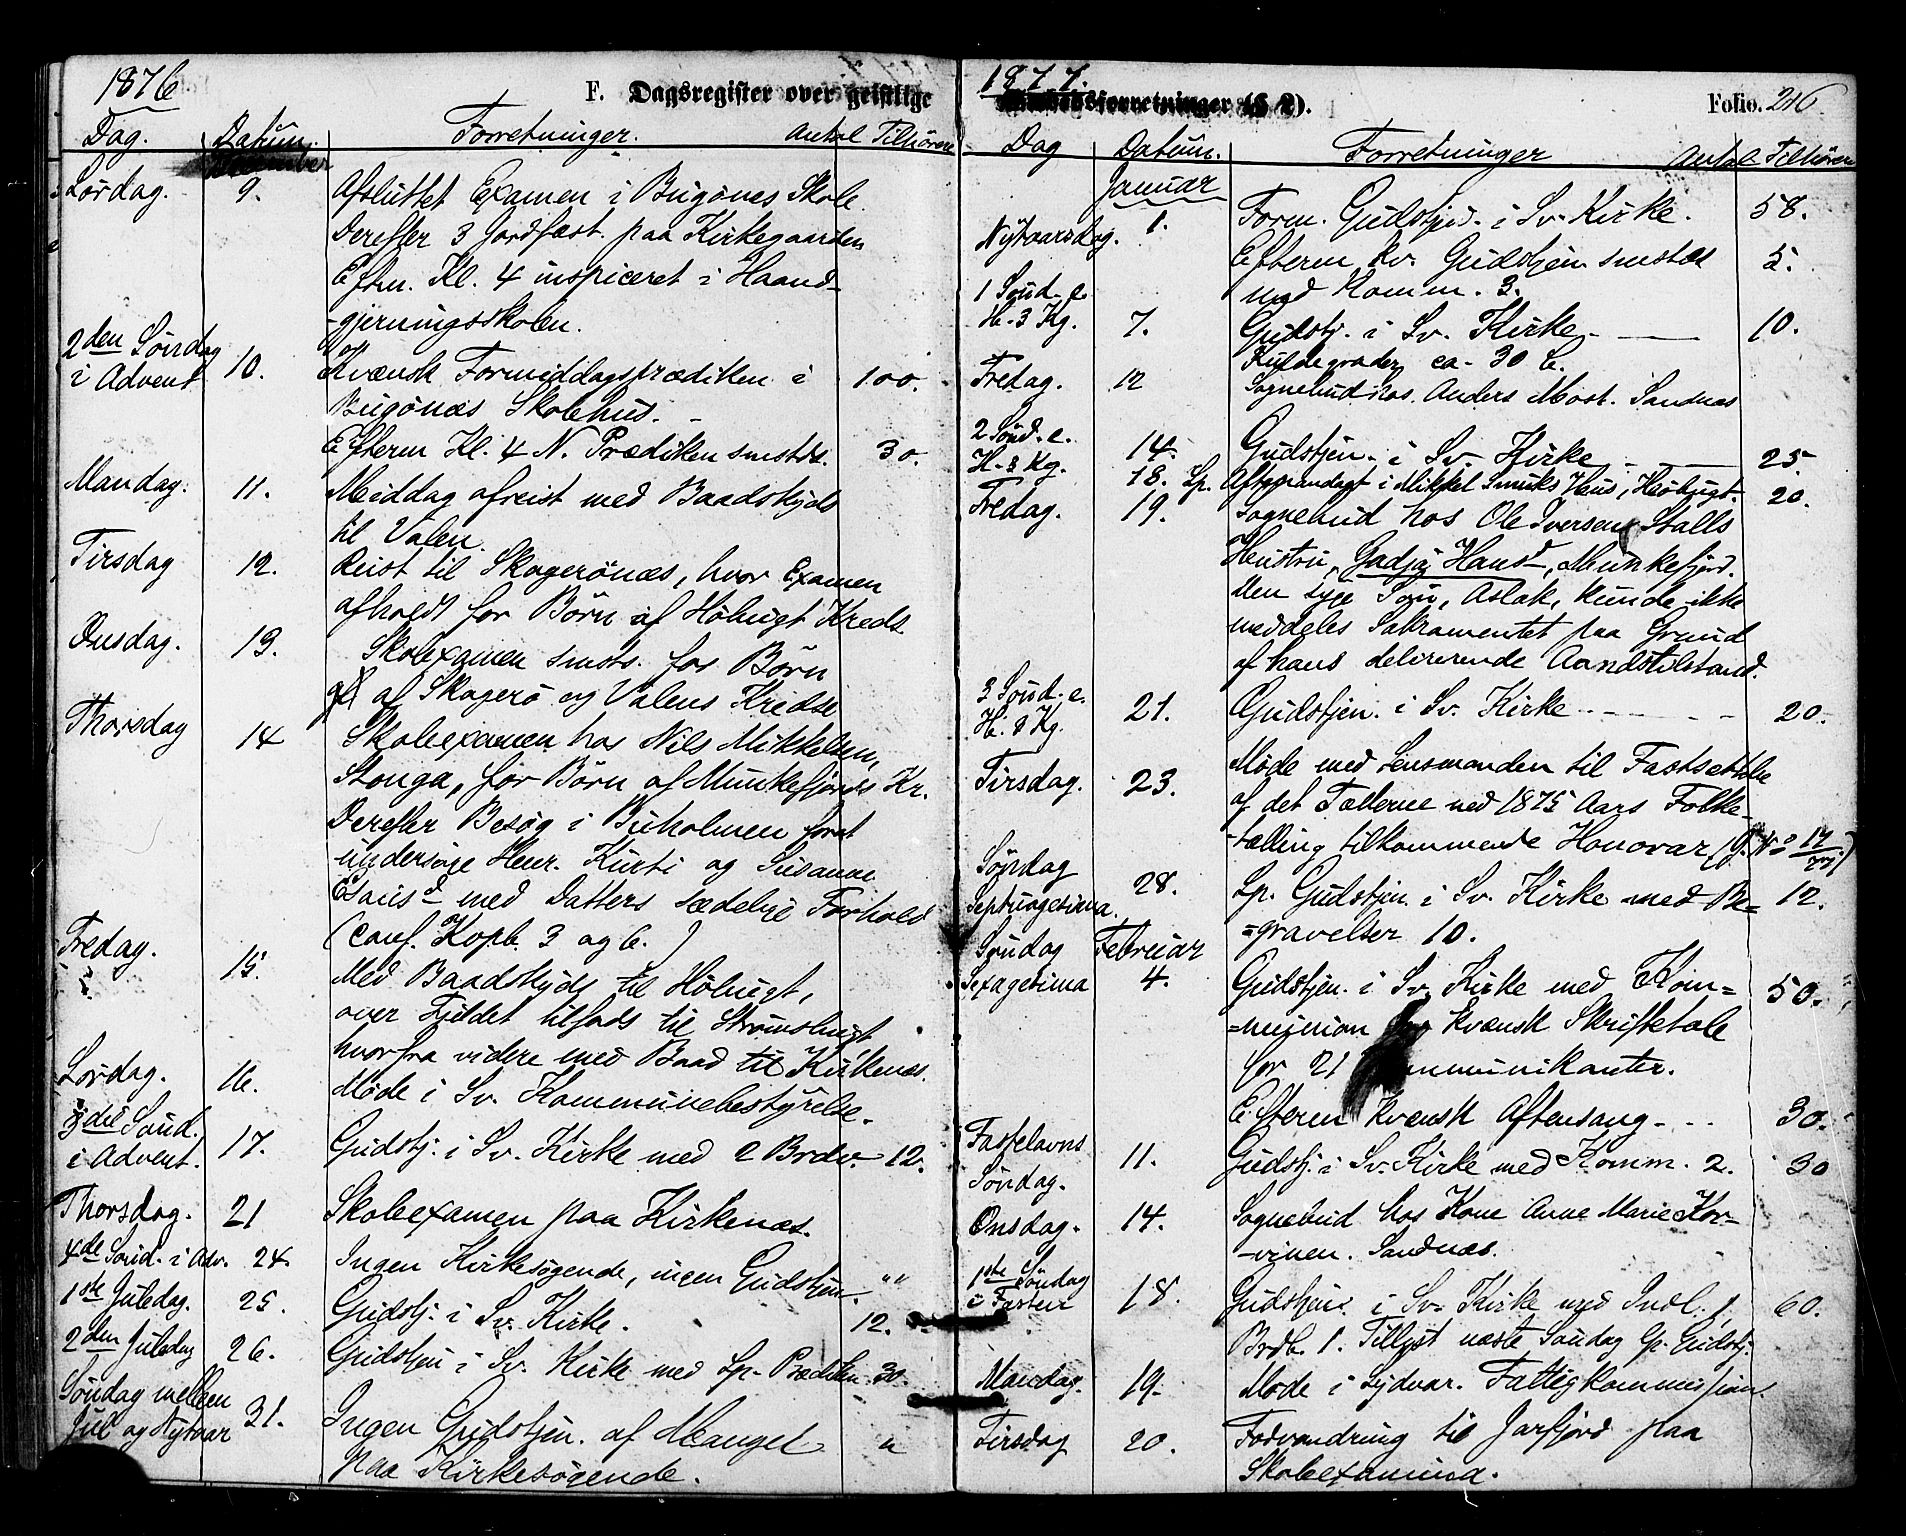 1876
F. Dagsregister over geistlige
Dag. Datum. Forretninger. Antal Tilhörere
December
Lördag. 9. Afsluttet Examen i Bugönes Skole.
Derefter 3 Jordfæst. paa Kirkegaarden
Eftm. Kl. 4 inspiceret i Haand-
-gjerningsskolen.
2den Söndag i Advent 10. Kvænsk Formiddagsprædiken i 100.
Bugönæs Skolehus. -
Efterm Kl. 4 N. Prædiken smstds. 30.
Mandag. 11. Middag afreist med Baadskyds
til Valen.
Tirsdag 12. Reist til Skogerönæs, hvor Examen
afholdt for Börn af Höbugt Kreds
Onsdag. 13. Skolexamen smsts. for Börn
af Skogerö og Valens Kredse
Thorsdag 14 Skoleexamen hos Nils Mikkelsen,
Stonga, for Börn af Munkefjords Kr.
Derefter Besög i Buholmen forat
undersöge Henr. Kurti og Susanne
Esaisd med Datters sædelige Forhold
(conf. Kopb. 3 og 6.)
Fredag. 15. Med Baadskyds til Höbugt,
over Fjeldet tilfods til Strömsbugt
hvorfra videre med Baad til Kirkenæs.
Lördag. 16. Möde i Sv. Kommunebestyrelse.
3die Sönd. i Advent. 17. Gudstj. i Sv. Kirke med 2 Brdv. 12.
Thorsdag. 21 Skoleexamen paa Kirkenæs.
4de Sönd. i Adv. 24. Ingen Kirkesögende, ingen Gudstjen. "
1ste Juledag. 25. Gudstj. i Sv. Kirke. 12.
2den Juledag 26. Gudstjen i Sv. Kirke med Lp. Prædiken 30.
Söndag mellem
Jul og Nytaar 31. Ingen Gudstjen. af Mangel "
paa Kirkesögende.
1877.
Embedsforretninger (§ 2).
Folio. 216
Dag Datum. Forretninger Antal Tilhörere
Januar
Nytaarsdag. 1. Form. Gudstjen. i Sv. Kirke. 58.
Efterm kv. Gudstjen smstds 5.
med Komm. 3.
1 Sönd. e. H. 3 Kg. 7. Gudstj. i Sv. Kirke - 10.
Kuldegrader ca. 30 C.
Fredag. 12 Sognebud hos. Anders Most. Sandnæs
2 Sönd. e. H. 3 Kg. 14. Gudstjen. i Sv. Kirke - 25.
18. Lp. Aftenandagt i Mikkel Smuks Hus, Höbugt. 20.
Fredag. 19. Sognebud hos Ole Iversen Stalls
Hustru, Gadja Hansd, Munkefjord.
Den syge Sön, Aslak, kunde ikke
meddeles Sakramentet paa Grund
af hans delirerende Aandstilstand.
3 Sönd. e. H. 3 Kg. 21. Gudstjen. i Sv. Kirke - 20.
Tirsdag. 23. Möde med Lensmanden til Fastsættelse
af det Tællerne ved 1875 Aars Folke-
-tælling tilkommende Honorar
Söndag Septuagesima. 28. Lp. Gudstjen. i Sv. Kirke med Be= 12.
=gravelser 10.
Februar
Söndag Sexagesima 4. Gudstjen. i Sv. Kirke med Kom= 50.
=munion Kvænsk Skriftetale
for 21 Kommunikanter.
Efterm Kvænsk Aftensang - 30.
Fastelavns Söndag. 11. Gudstj. i Sv. Kirke med Komm. 2. 30
Onsdag. 14. Sognebud hos Kone Anne Marie Kor-
-vinen. Sandnæs.
1ste Söndag i Fasten 18. Gudstjen. i Sv. Kirke med Indl. 1. 60.
Brdb. 1. Tillyst næste Söndag Lp. Gudstj.
Mandag. 19. Möde i Sydvar. Fattigkommission.
Tirsdag 20. Fodvandring til Jarfjord paa
Skoleexamina.